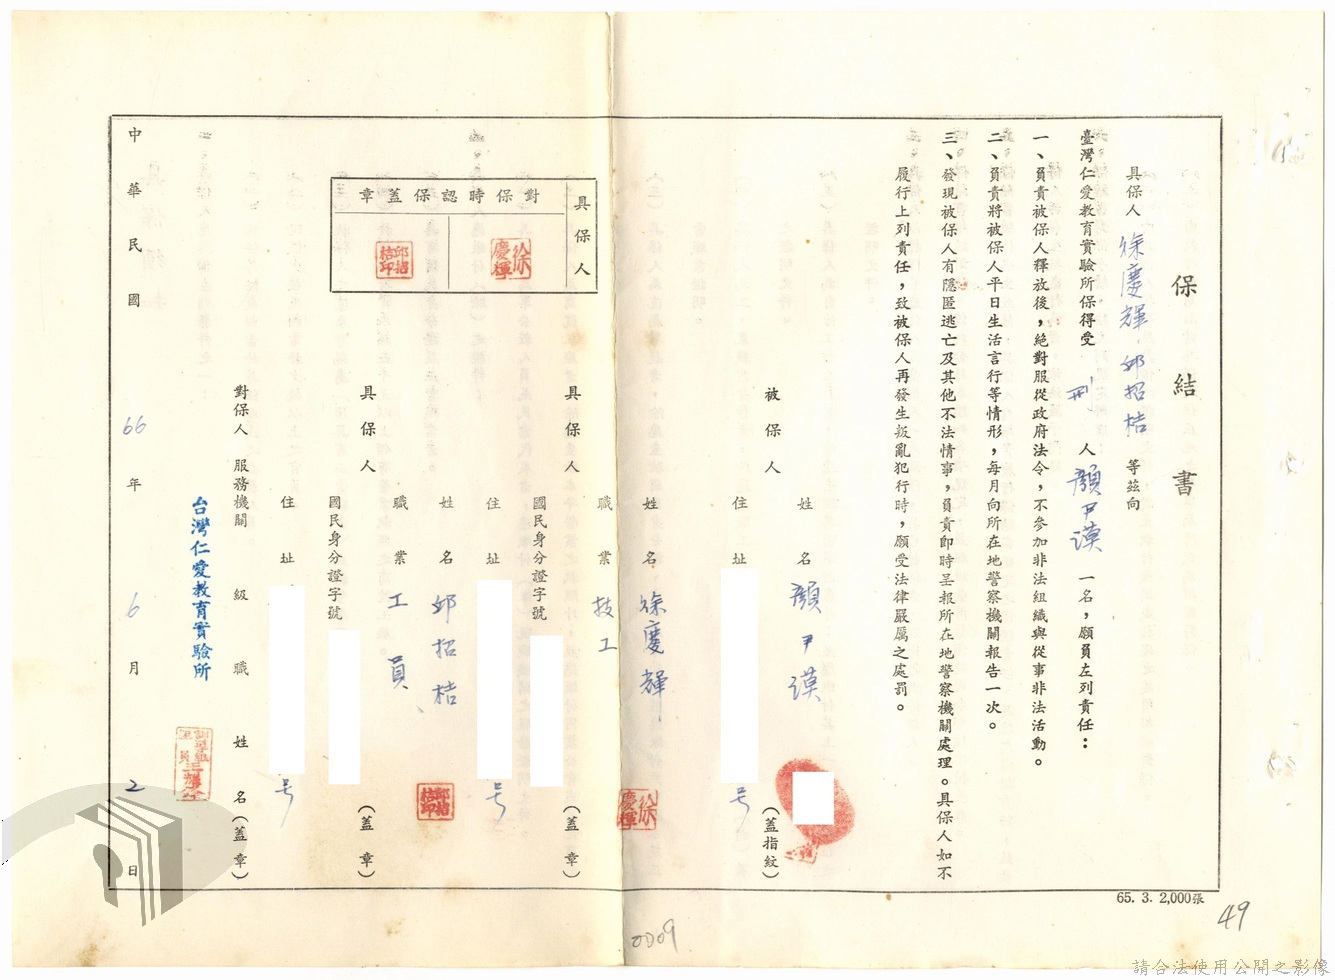 保結書
具保人 徐慶輝、邱招桔 等茲向
臺灣仁愛教育實驗所保得受 刑 人 顏尹謨 一名,願負左列責任:
一、負責被保人釋放後,絕對服從政府法令,不參加非法組織與從事非法活動。
二、負責將被保人平日生活言行等情形,每月向所在地警察機關報告一次。
三、發現被保人有隱匿逃亡及其他不法情事,負責即時呈報所在地警察機關處理。具保人如不
履行上列責任,致被保人再發生叛亂犯行時,願受法律嚴厲之處罰。
被保人
姓名 顏尹謨
住址 号
(蓋指紋)
具保人
姓名 徐慶輝
徐慶輝
職業 技工
國民身分證字號
住址 号
(蓋章)
具保人
對保時認保蓋章
徐慶輝
邱招桔印
具保人
姓名 邱招桔
邱招桔印
職業 工員
國民身分證字號
住址 号
(蓋章)
對保人 服務機關 級職 姓名(蓋章)
台灣仁愛教育實驗所
中華民國 66 年 6 月 2 日
65. 3. 2,000張
49
0009
請合法使用公開之影像